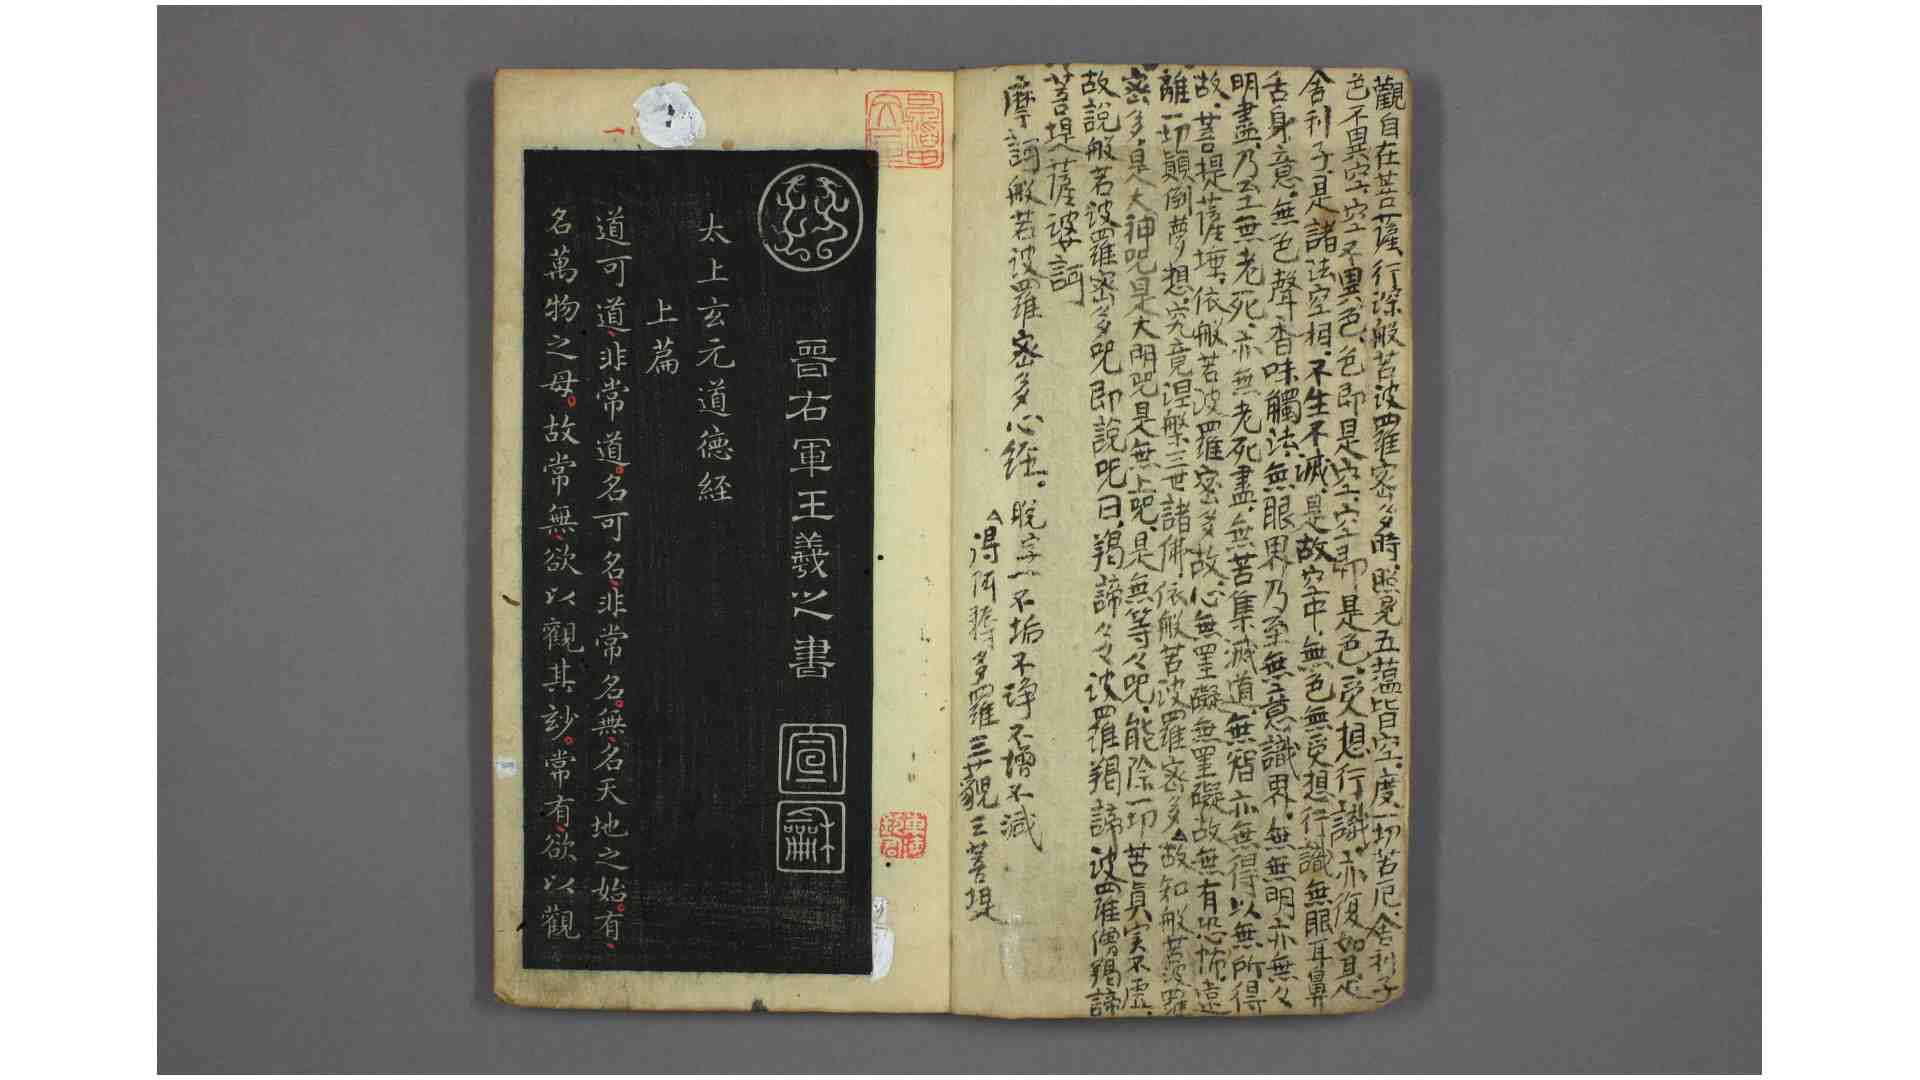 觀自在菩薩、行深般若波羅密多時、照見五蕴皆空。度一切苦厄、舍利子
色不異空、空不異色、色即是空、空即是色、受想行識、亦復如是、
舍利子、是諸法空相、不生不滅、是故空中、無色無受想行識無眼耳鼻
舌身意。無色聲香味觸法、無眼界乃至無意識界。無無明亦無々
明盡、乃至無老死、亦無老死盡、無苦集滅道、無智亦無得以無所得
故、菩提薩埵、依般若波羅密多故、心無罣礙無罣礙故無有恐怖。遠
離一切顛倒夢想、究竟涅槃三世諸佛、依般若波羅密多、故知般若波羅
密多、是大神呪是大明呪是無上呪、是無等々呪、能除一切苦眞実不虚、
故説般若波羅密多呪即説呪曰、羯諦々々波羅羯諦波羅僧羯諦
菩提薩婆訶
摩訶般若波羅密多心経。脱字一不垢不浄不増不減
得阿耨多羅三藐三菩提
晉右軍王羲之書
宣
龢
太上玄元道德経
上篇
道可道、非常道。名可名、非常名。無、名天地之始。有、
名萬物之母。故常無、欲以觀其玅。常有、欲以觀